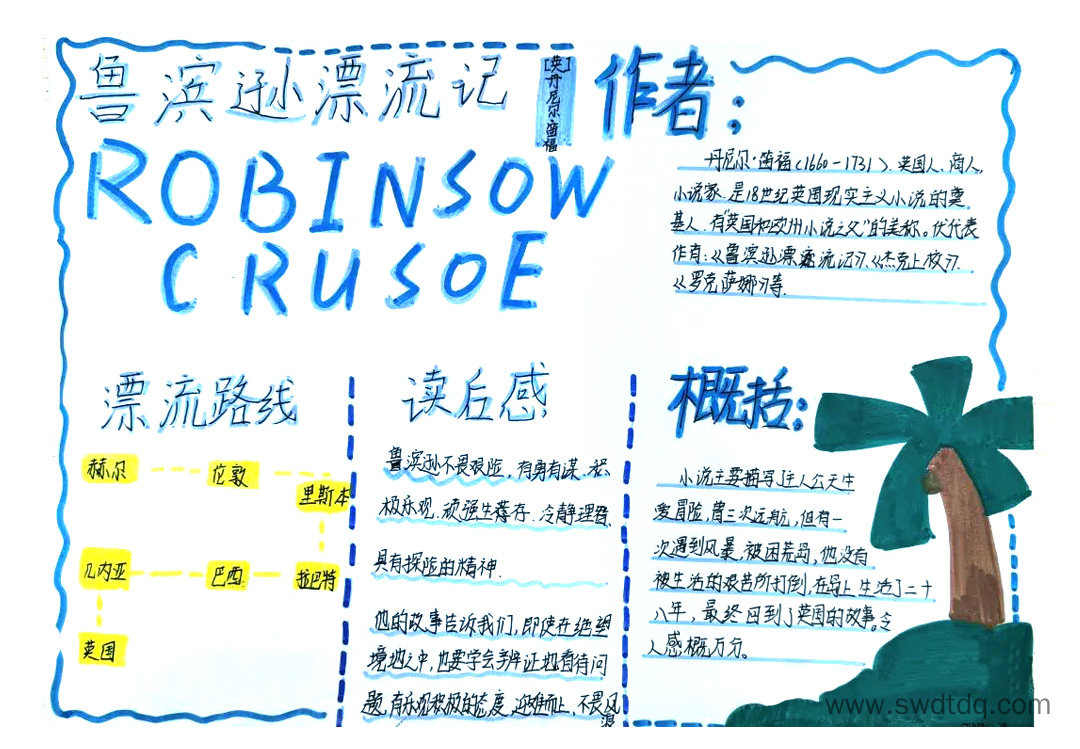 鲁滨逊漂流记
[英]丹尼尔·笛福
ROBINSOW
CRUSOE
作者：
丹尼尔·笛福（1660-1731）、英国人、商人，
小说家、是18世纪英国现实主义小说的奠
基人、有“英国和欧州小说之父”的美称。代表
作有：《鲁滨逊漂流记》、《杰克上校》、
《罗克萨娜》等.
漂流路线
赫尔
伦敦
里斯本
几内亚
巴西
拉巴特
英国
读后感
鲁滨逊不畏艰险，有勇有谋、积
极乐观、顽强生存、冷静理智、
具有探险的精神.
他的故事告诉我们，即使在绝望
境地之中，也要学会辨证地看待问
题，有乐观积极的态度，迎难而上，不畏风
浪
概括：
小说主要描写主人公天生
爱冒险，曾三次远航，但有一
次遇到风暴，被困荒岛，他没有
被生活的艰苦所打倒，在岛上生活了二十
八年，最终回到了英国的故事。令
人感概万分。
www.swdtdq.com